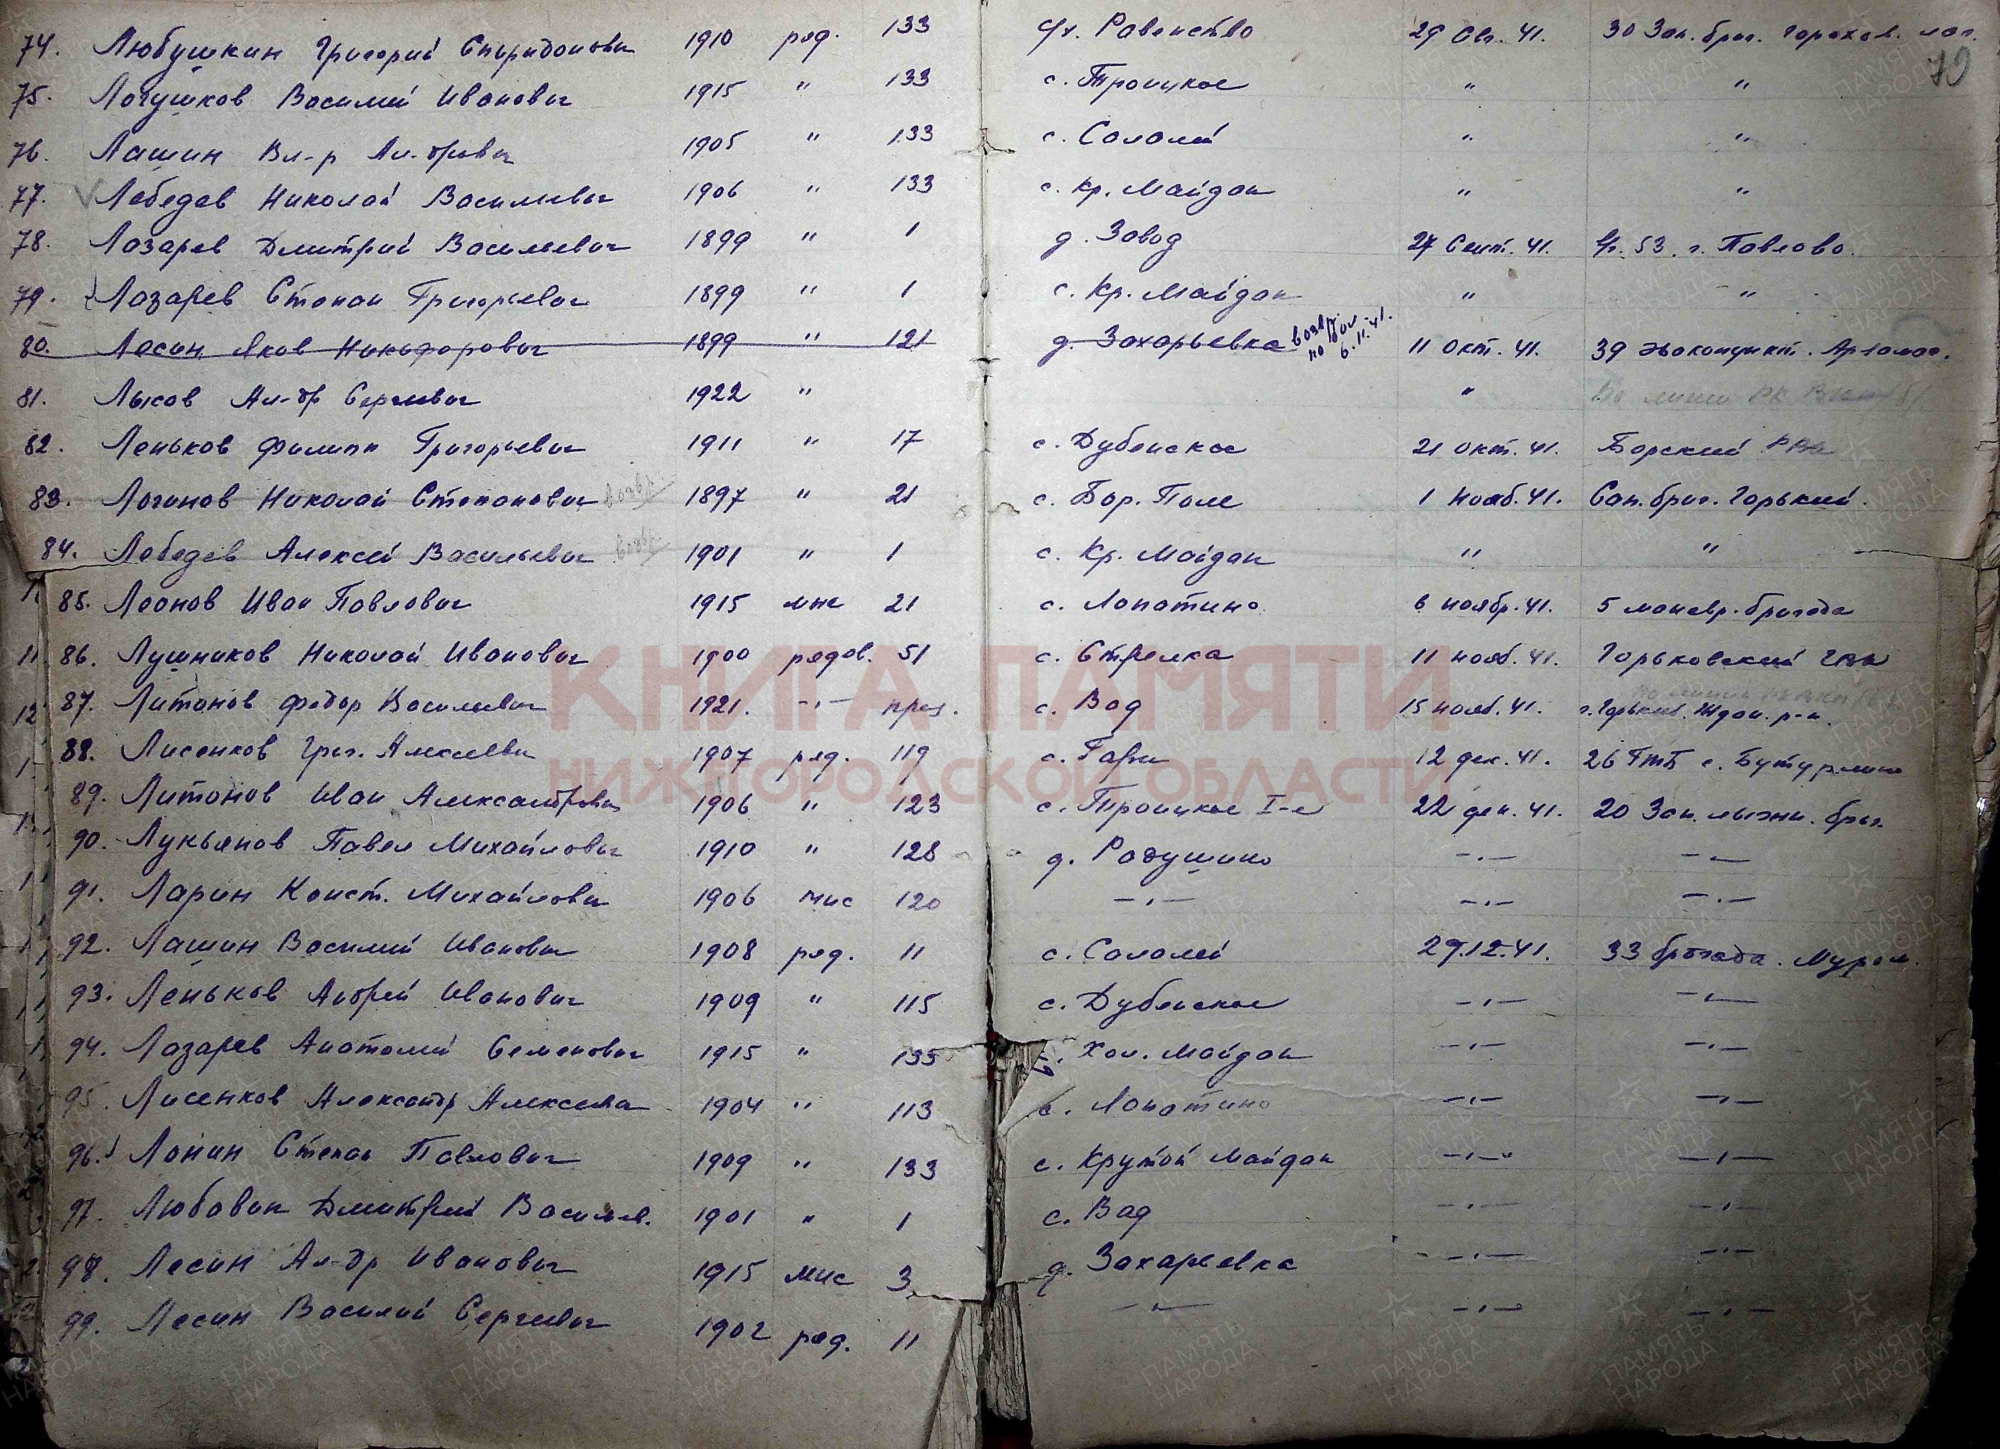 79
74. Любушкин Григорий Спиридонович 1910 ряд. 133 с/х. Равенство 29 Ав. 41. 30 Зап. бриг. Горохов. лаг.
75. Логушков Василий Иванович 1915 " 133 с. Троицкое " "
76. Лашин Вл-р Ал-дрович 1905 " 133 с. Салалей " "
77. Лебедев Николай Васильевич 1906 " 133 с. Кр. Майдан " "
78. Лазарев Дмитрий Васильевич 1899 " 1 д. Завод 27 Сент. 41. 53. г. Павлово.
79. Лазарев Степан Григорьевич 1899 " 1 с. Кр. Майдан " "
80. Лесин Яков Никифорович 1899 " 121 д. Захарьевка возвр. по бол. 6.11.41. 11 Окт. 41. 39 эвакопункт. Арзамас.
81. Лысов Ал-др Сергеевич 1922 " "
82. Леньков Филипп Григорьевич 1911 " 17 с. Дубенское 21 Окт. 41. Борский РВК
83. Логинов Николай Степанович возвр. 1897 " 21 с. Бор. Поле 1 Нояб. 41. Сап. бриг. Горький.
84. Лебедев Алексей Васильевич возвр. 1901 " 1 с. Кр. Майдан " "
85. Леонов Иван Павлович 1915 мнс 21 с. Лопатино 6 ноябр. 41. 5 маневр. бригада
86. Лушников Николай Иванович 1900 рядов. 51 с. Стрелка 11 нояб. 41. Горьковский ГВК
87. Литонов Федор Васильевич 1921. -"- приз. с. Вад 15 нояб. 41. г. Горький. Ждан. р-н.
88. Лисенков Григ. Алексеевич 1907 ряд. 119 с. Гари 12 дек. 41. 26 с. Бутурлино
89. Литонов Иван Александрович 1906 " 123 с. Троицкое I-е 22 дек. 41. 20 Зап. лыжн. бриг.
90. Лукьянов Павел Михайлович 1910 " 128 д. Радушино -"- -"-
91. Ларин Конст. Михайлович 1906 мнс 120 -"- -"- -"-
92. Лашин Василий Иванович 1908 ряд. 11 с. Салалей 29.12.41. 33 бригада. Муром.
93. Леньков Андрей Иванович 1909 " 115 с. Дубенское -"- -"-
94. Лазарев Анатолий Семенович 1915 " 135 с. Хол. Майдан -"- -"-
95. Лисенков Александр Алексеевич 1904 " 113 с. Лопатино -"- -"-
96. Лонин Степан Павлович 1909 " 133 с. Крутой Майдан -"- -"-
97. Любавин Дмитрий Васильев. 1901 " 1 с. Вад -"- -"-
98. Лесин Ал-др Иванович 1915 мнс 3 д. Захарьевка -"- -"-
99. Лесин Василий Сергеевич 1902 ряд. 11 -"- -"- -"-
КНИГА ПАМЯТИ
НИЖГОРОДСКОЙ ОБЛАСТИ
ПАМЯТЬ НАРОДА